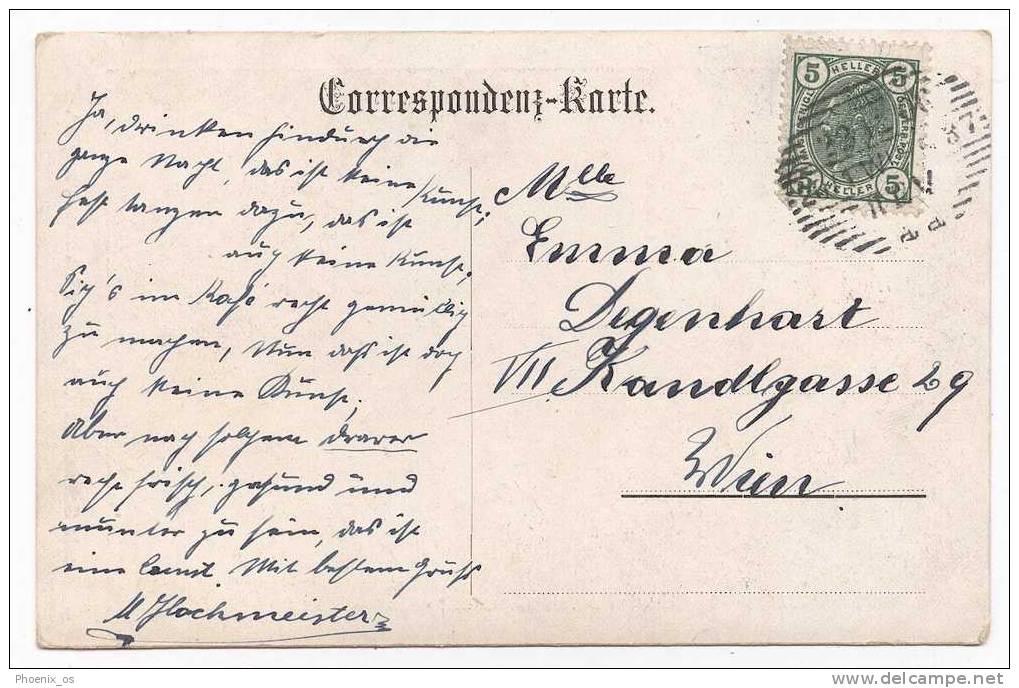 Correspondenz-Karte.
5 HELLER 5
HELLER 5
Ja, drinken hindurch die
ganze Nacht, das ist keine Kunst;
fest tanzen dazu, das ist
auch keine Kunst;
Sich's im Kafé recht gemütlich
zu machen, Nun das ist doch
auch keine Kunst,
Aber nach solchem Drarer
recht frisch, gesund und
munter zu sein, das ist
eine Kunst. Mit bestem Gruß
Mlle
Emma
Degenhart
VII Kandlgasse 29
Wien
Phoenix_os
delcampe.net